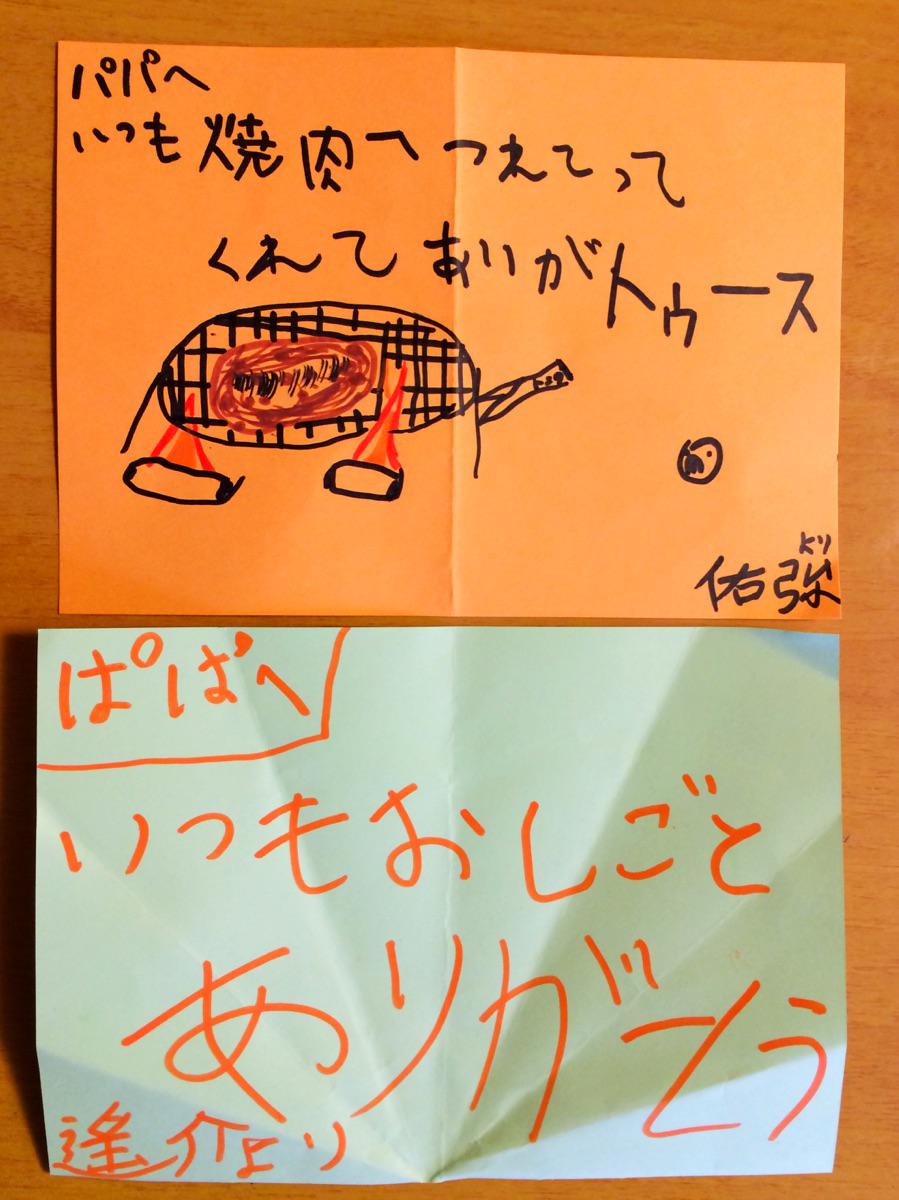 パパへ
いつも焼肉へつれてって
くれてありがトゥース
佑弥より
ぱぱへ
いつもおしごと
ありがとう
遥介より